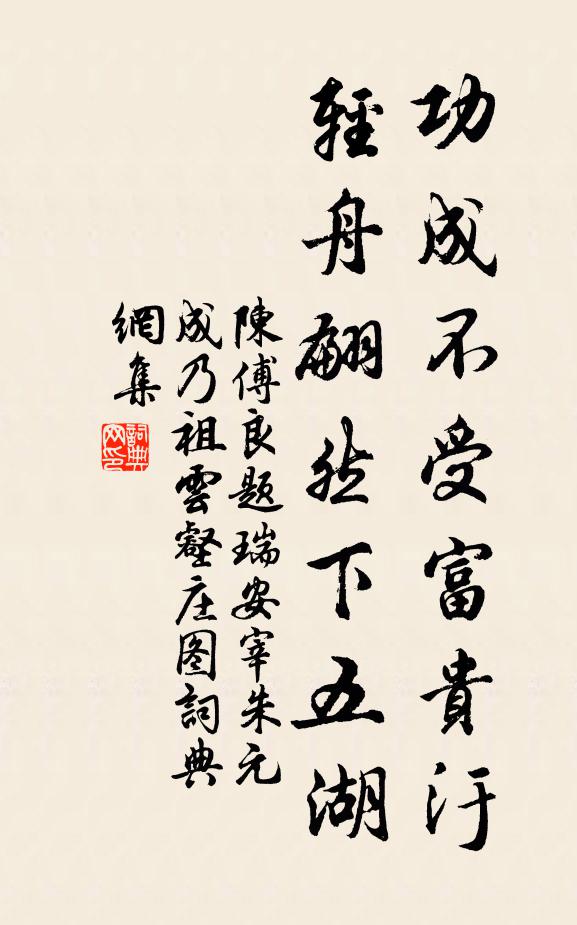 功成不受富貴汙
輕舟翩然下五湖
陳傅良題瑞安宰朱元
成乃祖雲壑庄图詞典
網集
詞典网印